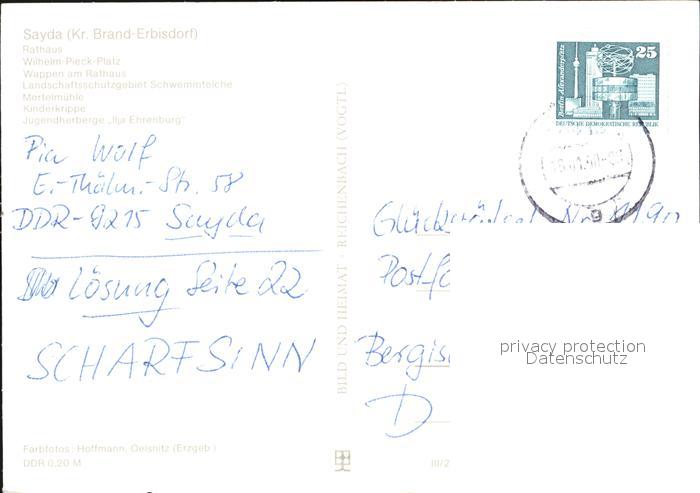 Sayda (Kr. Brand-Erbisdorf)
Rathaus
Wilhelm-Pieck-Platz
Wappen am Rathaus
Landschaftsschutzgebiet Schwemmteiche
Mortelmühle
Kinderkrippe
Jugendherberge „Ilja Ehrenburg"
Pia Wolf
E.-Thälm.-Str. 58
DDR-9215 Sayda
Lösung Seite 22
SCHARFSINN
Farbfotos: Hoffmann, Oelsnitz (Erzgeb.)
DDR 0,20 M
BILD UND HEIMAT · REICHENBACH (VOGTL)
III/2
Berlin-Alexanderplatz
25
DEUTSCHE DEMOKRATISCHE REPUBLIK
Postfa
Bergis
D
privacy protection
Datenschutz